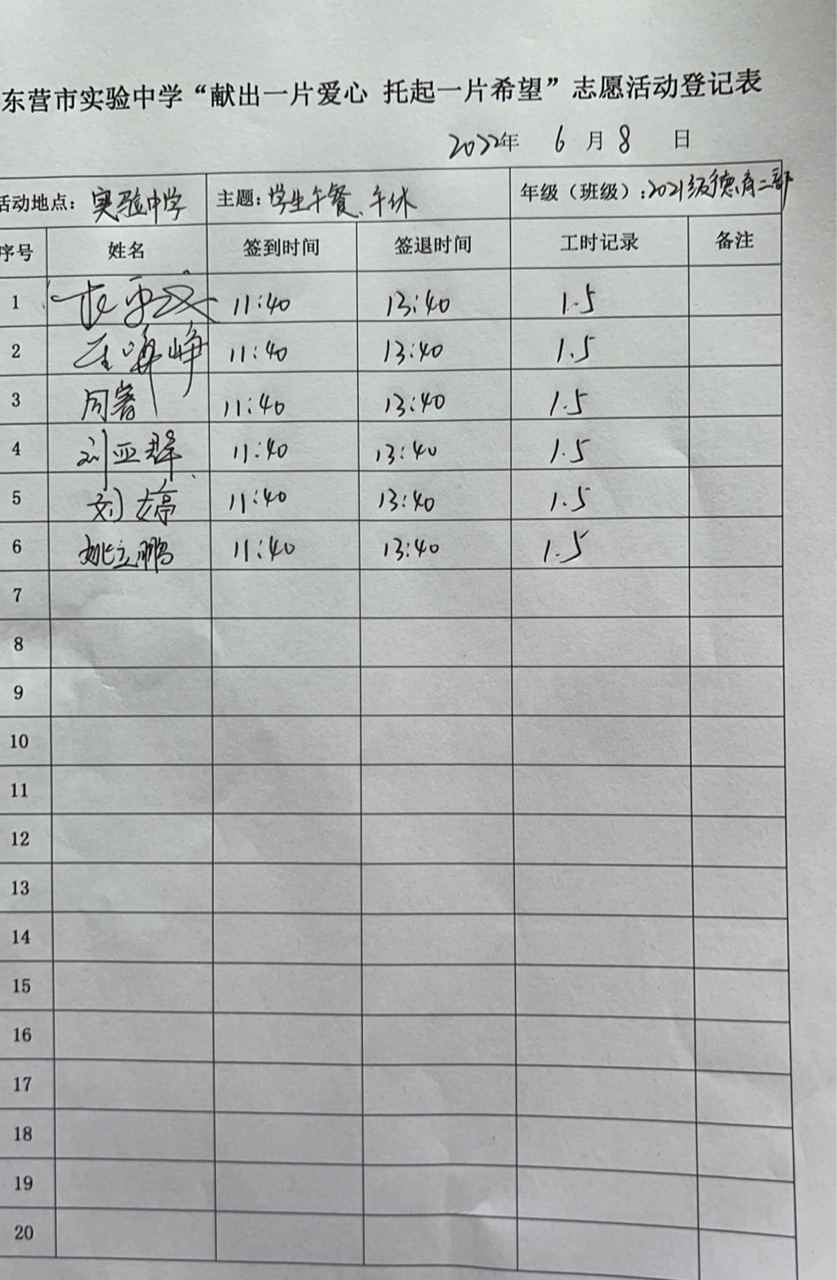 东营市实验中学“献出一片爱心 托起一片希望”志愿活动登记表
2022年 6月8日
活动地点：实验中学 主题：学生午餐、午休 年级（班级）：2021级德育二部
序号 姓名 签到时间 签退时间 工时记录 备注
1 11:40 13:40 1.5
2 11:40 13:40 1.5
3 11:40 13:40 1.5
4 刘亚群 11:40 13:40 1.5
5 刘婷 11:40 13:40 1.5
6 姚立鹏 11:40 13:40 1.5
7
8
9
10
11
12
13
14
15
16
17
18
19
20